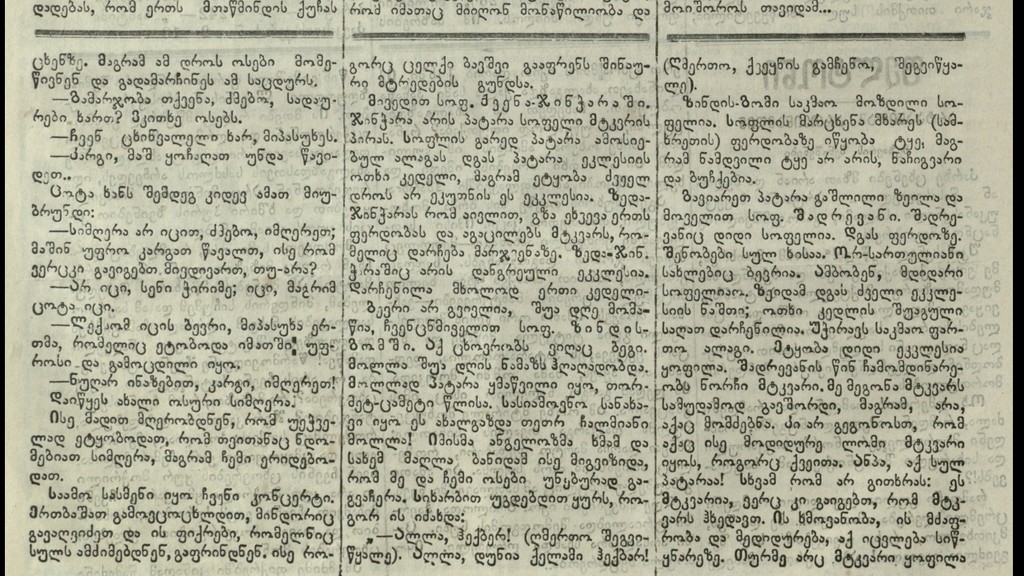 დადებას, რომ ერთს მთაწმინდის ქუჩას
ცხენზე. მაგრამ ამ დროს ოსები მომე-
წივნენ და გადამარჩინეს ამ საცდურს.
—გამარჯობა თქვენა, ძმებო, სადაუ-
რები ხართ? ვკითხე ოსებს.
—ჩვენ ცხინველელი ხარ, მიპასუხეს.
—კარგი, მაშ ყოჩაღათ უნდა წავი-
დეთ..
ცოტა ხანს შემდეგ კიდევ ამათ მივ-
ბრუნდი:
—სიმღერა არ იცით, ძმებო, იმღერეთ;
მაშინ უფრო კარგათ წავალთ, ისე რომ
ვერცკი გავიგებთ მივდივართ, თუ-არა?
—არ იცი, სენი ჭირიმე; იცი, მაგრიმ
ცოტა იცი.
—ლექსომ იცის ბევრი, მიპასუხა ერ-
თმა, რომელიც ეტობოდა იმათში უფ-
როსი და გამოცდილი იყო.
—ნუღარ ინაზებით, კარგი, იმღერეთ!
დაიწყეს ახალი ოსური სიმღერა.
ისე მადით მღეროდნენ, რომ უეჭვე-
ლად ეტყობოდათ, რომ თვითანაც ნდო-
მებიათ სიმღერა, მაგრამ ჩემი ერიდებო-
დათ.
საამო სასმენი იყო ჩვენი კონცერტი.
ერთბაშათ გამოვცოცხლდით, მინდორიც
გავაღვიძეთ და ის ფიქრები, რომელნიც
სულს ამძიმებდნენ, გაფრინდნენ. ისე რო-
რომ იმათაც მიიღონ მონაწილობა და
გორც ცელქი ბავშვი გააფრენს შინაუ-
რი მტრედების გუნდსა.
მივედით სოფ. ქვენა-ჭინჭარაში.
ჭინჭარა არის პატარა სოფელი მტკვრის
პირას. სოფლის გარედ პატარა ამოსიე-
ბულ ალაგას დგას პატარა ეკლესიის
ოთხი კედელი, მაგრამ ეტყობა ძველ
დროს არ ეკუთნის ეს ეკკლესია. ზედა-
ჭინჭარას რომ აივლით, გზა ეხვევა ერთს
ფერდობას და აგაცილებს მტკვარს, რო-
მელიც დარჩება მარჯვენაზე. ზედა-ჭინ.
ჭრაშიც არის დანგრეული ეკკლესია.
დარჩენილა მხოლოდ ერთი კედელი-
ბევრი არ გვევლია, შუა დღე მომა-
წია, ჩვენცმივედით სოფ. ზინდის-
გომში. აქ ცხოვრობს ვიღაც ბეგი.
მოლლა შუა დღის ნამაზს ჰღაღადობდა.
მოლლად პატარა ყმაწვილი იყო, თორ-
მეტ-ცამეტი წლისა. სასიამოვნო სანახა-
ვი იყო ეს ახალგაზდა თეთრ ჩალმიანი
მოლლა! იმისმა ანგელოზმა ხმამ და
სახემ მაღლა ბანიდამ ისე მიგვიზიდა,
რომ მე და ჩემი ოსები უნებურად გა-
გვაჩერა. სიხარბით უგდებდით ყურს, რო-
გორ ის იძახდა:
—ალლა, ჰექბერ! (ღმერთო შეგვი-
წყალე). ალლა, დუნია ქელამი ჰექბარ!
მოიშოროს თავიდამ...
(ღმერთო, ქვეყნის გამჩენო, შეგვიწყა-
ლე).
ზინდის-გომი საკმაო მოზდილი სო-
ფელია. სოფლის მარცხენა მხარეს (სამ-
ხრეთის) ფერდობაზე იწყობა ტყე; მაგ-
რამ ნამდვილი ტყე არ არის, ნაჩიგვარი
და ბუჩქებია.
გავიარეთ პატარა გაშლილი ზეილა და
მოველით სოფ. შადრევანი. შადრე-
ვანიც დიდი სოფელია. დგას ფერდოზე.
შენობები სულ ხისაა. ორ-სართულიანი
სახლებიც ბევრია. ამბობენ, მდიდარი
სოფელიაო. ზევიდამ დგას ძველი ეკკლე-
სიის ნაშთი; ოთხი კედლის შუაგული
საღათ დარჩენილია. უჭირავს საკმაო ფარ-
თო ალაგი. ეტყობა დიდი ეკკლესია
ყოფილა. შადრევანის წინ ჩამომდინარე-
ობს ნორჩი მტკვარი. მე მეგონა მტკვარს
სამუდამოდ გავშორდი, მაგრამ, არა,
აქაც მომძებნა. კი არ გეგონოსთ, რომ
აქაც ისე მოდიდურე ლომი მტკვარი
იყოს, როგორც ქვეითა. ანპა, აქ სულ
პატარაა! სხვამ რომ არ გითხრას: ეს
მტკვარია, ვერც კი გაიგებთ, რომ მტკ-
ვარს ჰხედავთ. ის ხმოვანობა, ის მძაფ-
რობა და მედიდურება, აქ იცვლება სიწ-
ყნარეზე. თურმე არც მტკვარი ყოფილა